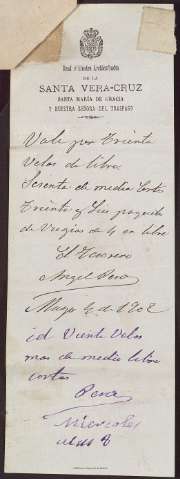 Real é Ilustre Archicofradía
DE LA
SANTA VERA-CRUZ
SANTA MARÍA DE GRACIA
Y NUESTRA SEÑORA DEL TRASPASO
Vale por Treinta
Velas de libra
Sesenta de media Cortas
Treinta y Seis paquetes
de Vugías de 4 en libra
El Tesorero
Angel Pera
Mayo 4 de 1902
id Veinte Velas
mas de media libra
cortas
Pera
Miercoles